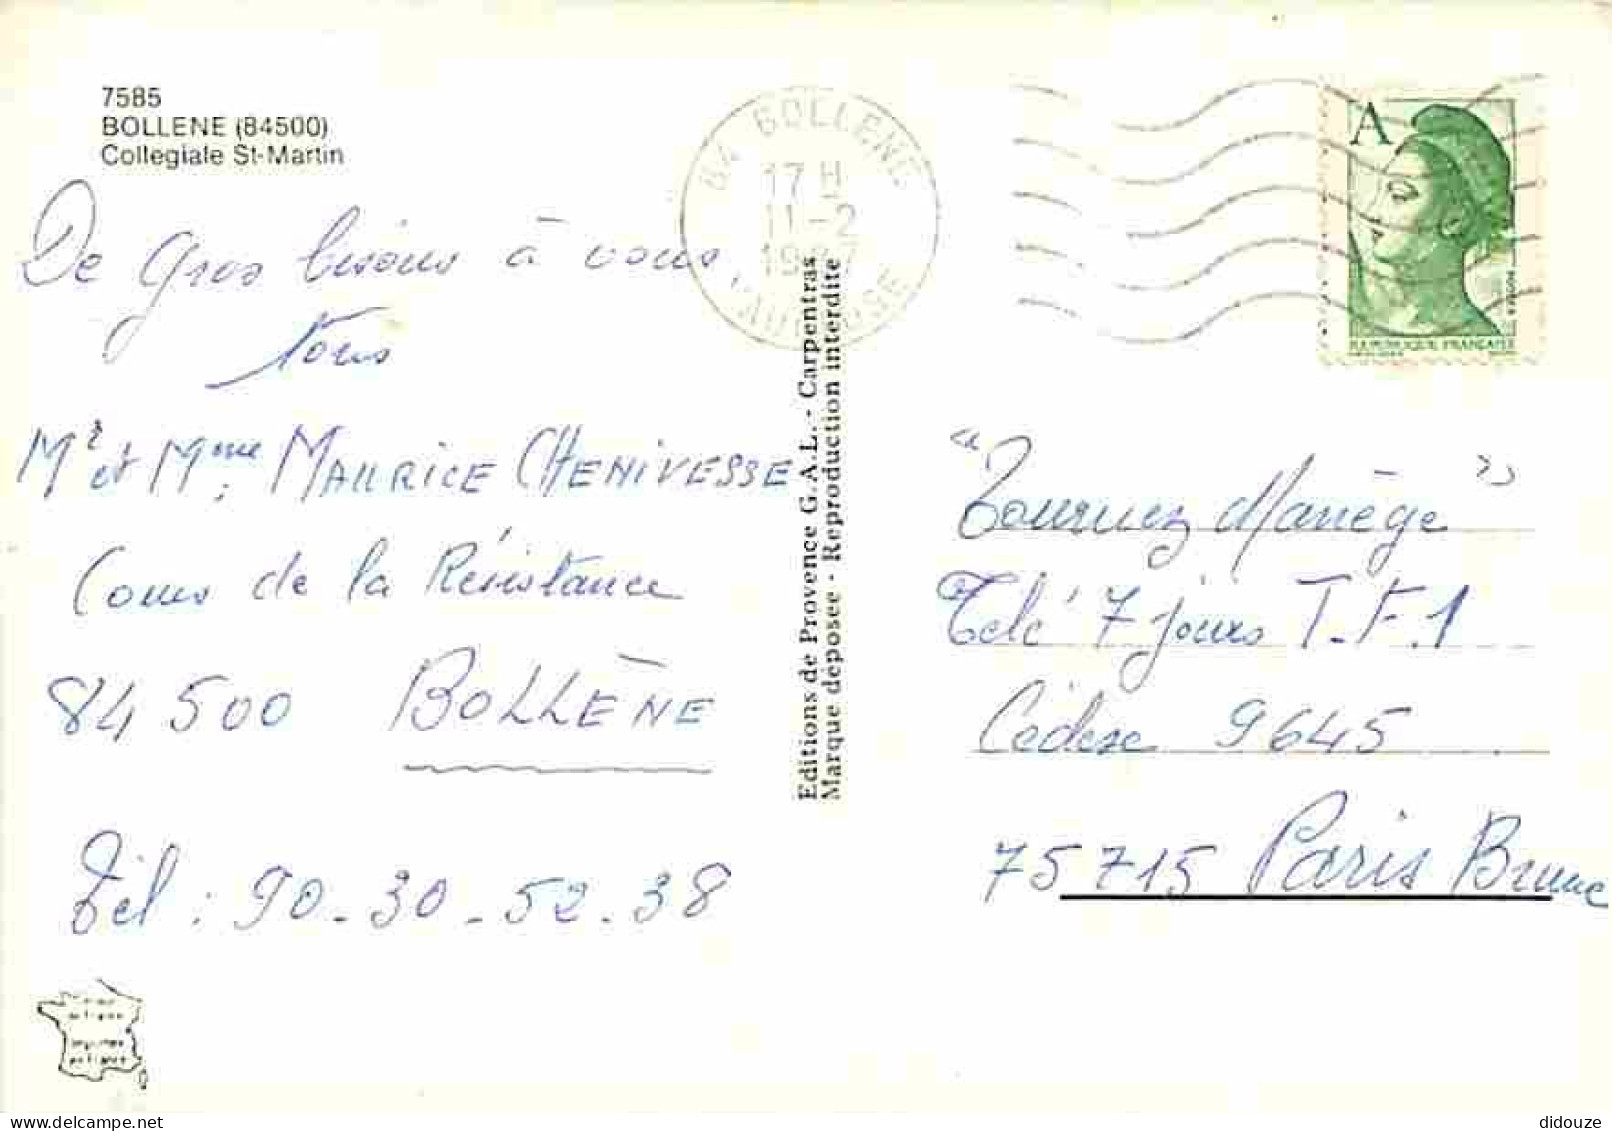 7585
BOLLENE (84500)
Collegiale St-Martin
De gros bisous à vous,
tous
Mr et Mme : MAURICE CHENIVESSE
Cours de la Résistance
84 500 BOLLÈNE
Tél : 90-30-52-38
84 BOLLENE
17 H
11-2
VAUCLUSE
Editions de Provence G.A.L. - Carpentras
Marque deposee - Reproduction interdite
A
REPUBLIQUE FRANÇAISE
"Tournez Manège"
Télé 7 jours T.F.1
Cédex 9645
75715 Paris Brune
en France
delcampe.net
didouze